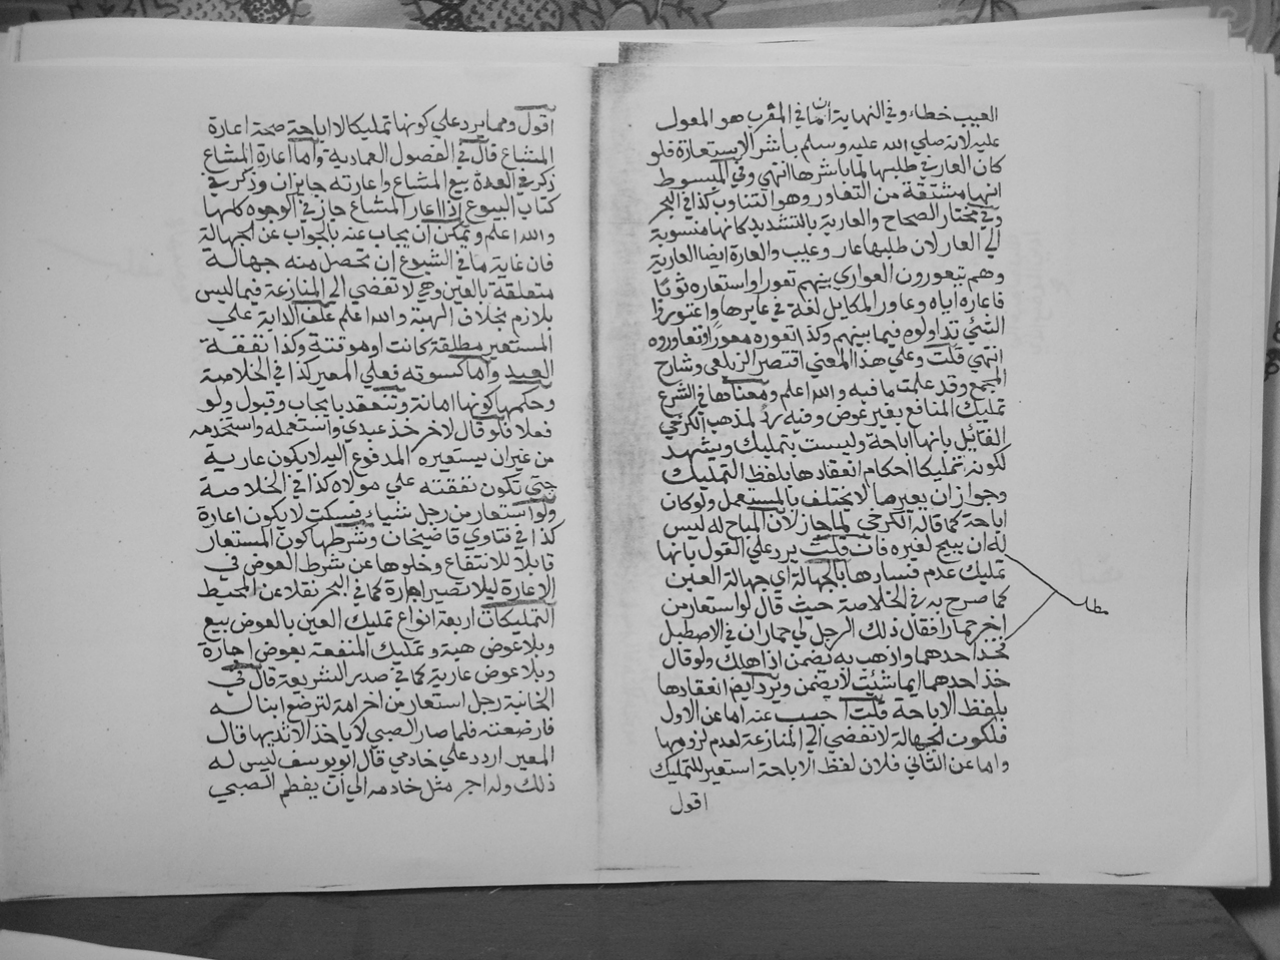 العيب خطاء وفي النهاية أن ما في المغرب هو المعول
عليه لانه صلي الله عليه وسلم باشر الاستعارة فلو
كان العار في طلبها لما باشرها انتهي وفي المبسوط
انها مشتقة من التعاور وهو التناوب كذا في البحر
وفي مختار الصحاح والعارية بالتشديد كانها منسوبة
الي العار لان طلبها عار وعيب والعارة ايضا العارية
وهم يتعورون العواري بينهم تعورا واستعاره ثوبًا
فاعاره اياه وعاور المكايل لغة في عايرها واعتوروا
الشئ تداولوه فيما بينهم وكذا تعوره معورًا وتعاوروه
انتهي قلت وعلي هذا المعني اقتصر الزيلعي وشارح
المجمع وقد علمت ما فيه والله اعلم ومعناها في الشرع
تمليك المنافع بغير عوض وفيه ردُ لمذهب الكرخي
القائل بانها اباحة وليست بتمليك ويشهد
لكونه تمليكا احكام انعقادها بلفظ التمليك
وجواز ان يعير ما لا يختلف بالمستعمل ولو كان
اباحة كما قاله الكرخي لما جاز لان المباح له ليس
له ان يبيح لغيره فان قلت يرد علي القول بانها
تمليك عدم فسادها بالجهالة اي جهالة العين
كما صرح به في الخلاصة حيث قال لو استعار من
اخر حمارا فقال ذلك الرجل لي حماران في الاصطبل
فخذ احدهما واذهب به يضمن اذا هلك ولو قال
خذ احدهما ايما شئت لا يضمن ويرد ايضا انعقادها
بلفظ الاباحة قلت اجيب عنه اما عن الاول
فلكون الجهالة لا تفضي الي المنازعة لعدم لزومها
واما عن الثاني فلان لفظ الاباحة استعير للتمليك
اقول
مطلب
اقول ومما يرد علي كونها تمليكا لا اباحة صحة اعارة
المشاع قال في الفصول العمادية واما اعارة المشاع
ذكر في العدة بيع المشاع واعارته جايزان وذكر في
كتاب البيوع اذا اعار المشاع جاز في الوجوه كلها
والله اعلم ويمكن ان يجاب عنه بالجواب عن الجهالة
فان غاية ما في الشيوع ان تحصل منه جهالة
متعلقة بالعين وهي لا تفضي الي المنازعة فيما ليس
بلازم بخلاف الهبة والله اعلم علف الدابة علي
المستعير مطلقة كانت او موقتة وكذا نفقة
العبد واما كسوته فعلي المعير كذا في الخلاصة
وحكمها كونها امانة وتنعقد بايجاب وقبول ولو
فعلا فلو قال لاخر خذ عبدي واستعمله واستخدمه
من غير ان يستعيره المدفوع اليه لا يكون عارية
حتي تكون نفقته علي مولاه كذا في الخلاصة
ولو استعار من رجل شياء فسكت لا يكون اعارة
كذا في فتاوي قاضيخان وشرطها كون المستعار
قابلا للانتفاع وخلوها عن شرط العوض في
الاعارة ليلا تصير اجارة كما في البحر نقلا عن المحيط
التمليكات اربعة انواع تمليك العين بالعوض بيع
وبلا عوض هبة وتمليك المنفعة بعوض اجارة
وبلا عوض عارية كما في صدر الشريعة قال في
الخانية رجل استعار من اخر امة لترضع ابنا له
فارضعته فلما صار الصبي لا ياخذ الا ثديها قال
المعير اردد علي خادمي قال ابو يوسف ليس له
ذلك وله اجر مثل خادمه الي ان يفطم الصبي